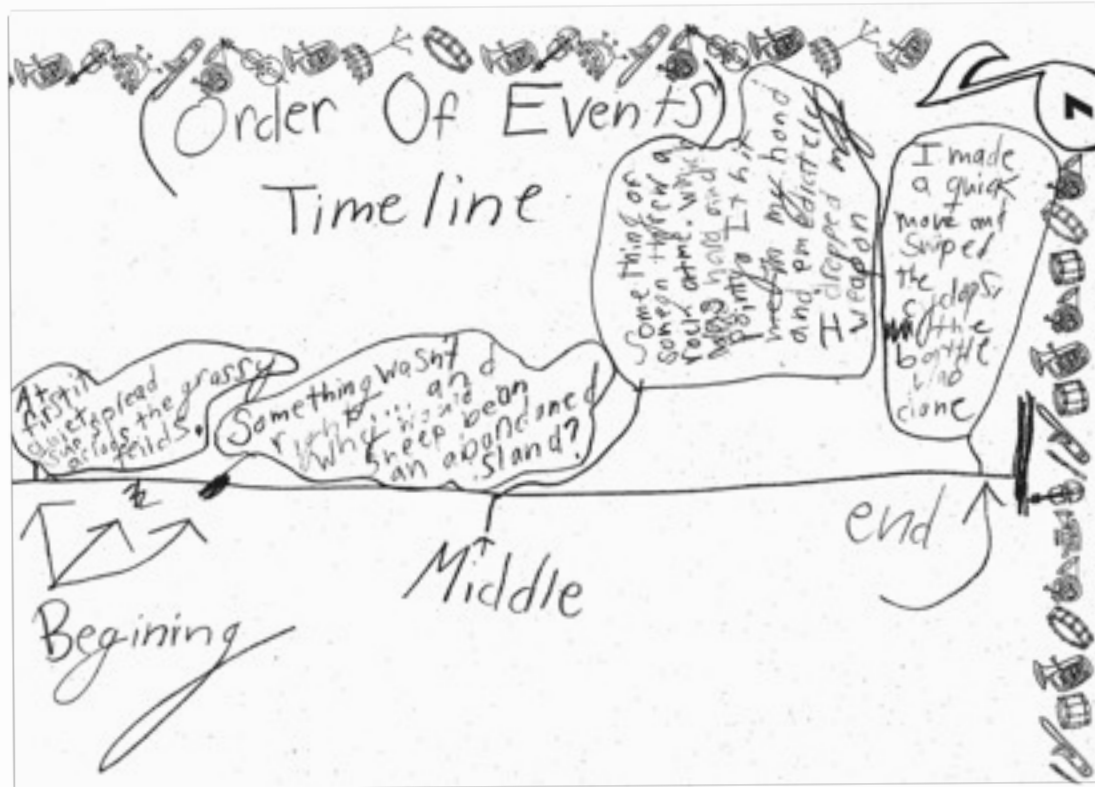 (Order Of Events)
Timeline
At
first it
quiet spread
across the grassy
feilds.
Something wasn't
right.... and
why would
sheep be on
an abandoned
island?
Something or
someon threw a
rock at me. Which
was hard and
pointy. It hit
my hand
and emedietely
I dropped my
weapon
I made
a quick
move and
sniped
the
cyclops,
the
battle
was
done
Begining
Middle
end
7